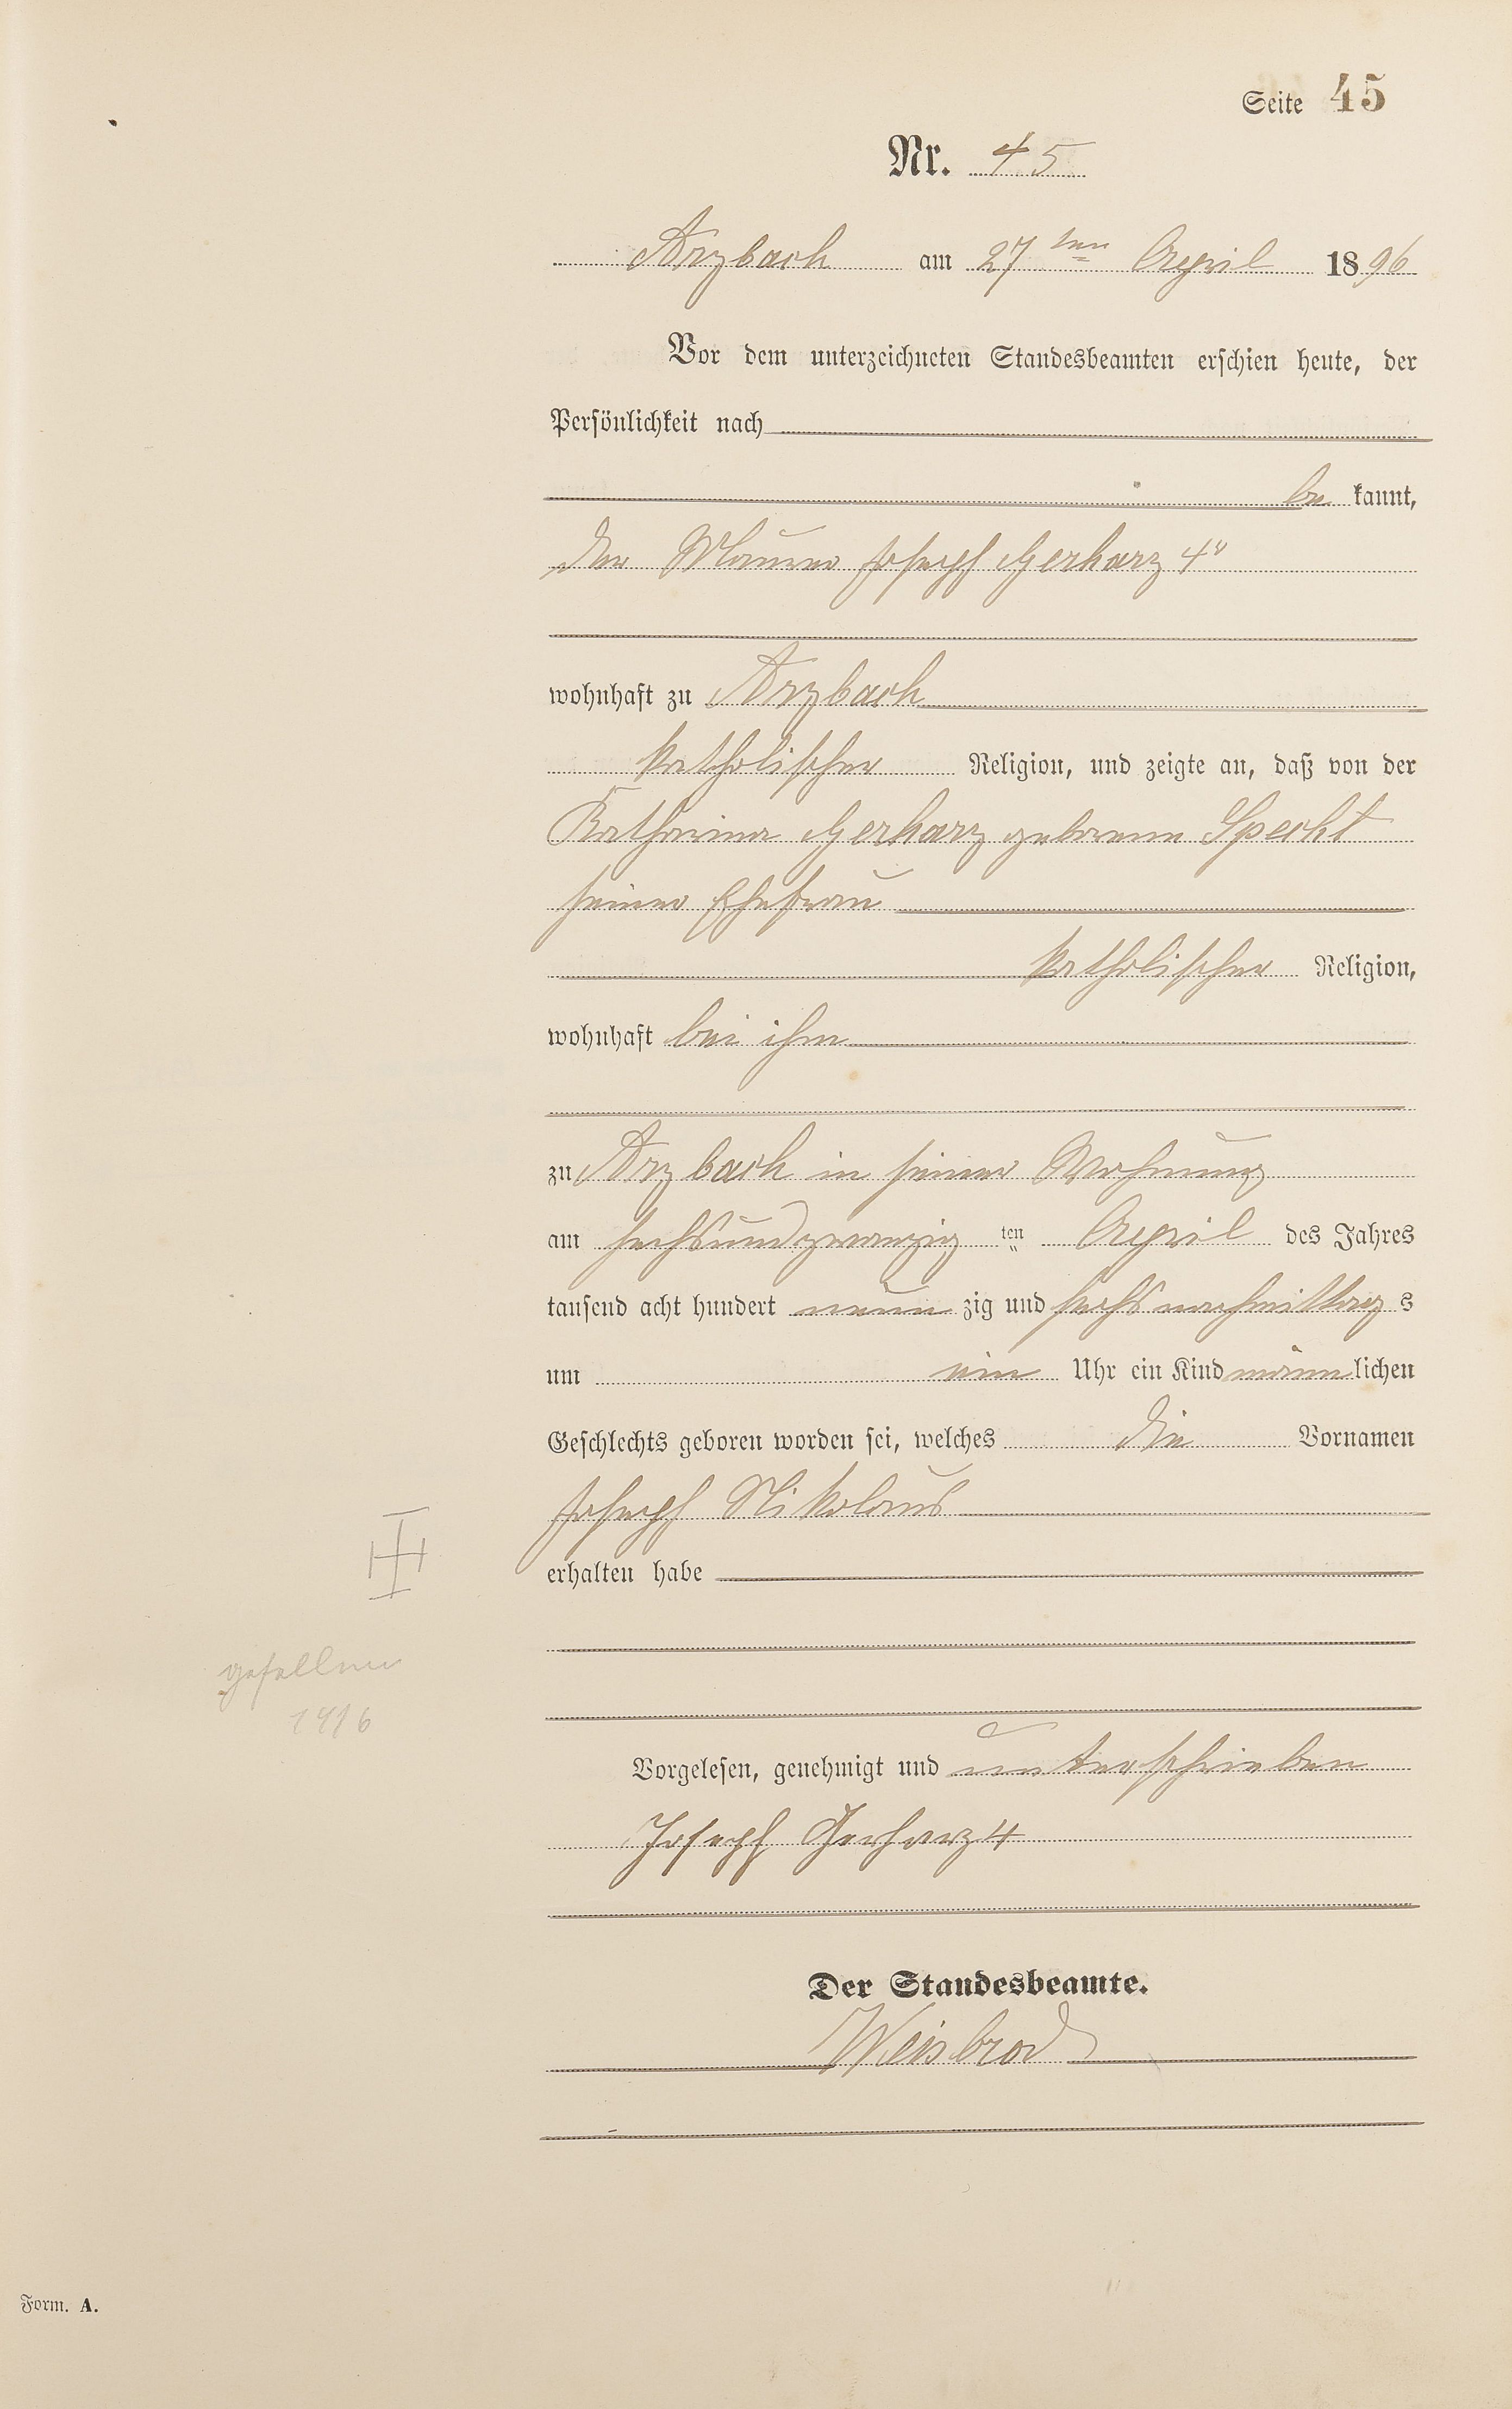 Seite 45
Nr. 45
Arzbach am 27ten April 1896
Vor dem unterzeichneten Standesbeamten erschien heute, der
Persönlichkeit nach
be kannt,
der Maurer Joseph Gerharz 4r
wohnhaft zu Arzbach
katholischer Religion, und zeigte an, daß von der
Katharina Gerharz geborene Specht
seiner Ehefrau
katholischer Religion,
wohnhaft bei ihm
zu Arzbach in seiner Wohnung
am sechsundzwanzig ten April des Jahres
tausend acht hundert neun zig und sechs nachmittag s
um ein Uhr ein Kind männ lichen
Geschlechts geboren worden sei, welches die Vornamen
Joseph Nikolaus
erhalten habe
gefallen
1916
Vorgelesen, genehmigt und unterschrieben
Joseph Gerharz 4
Der Standesbeamte.
Weisbrod
Form. A.